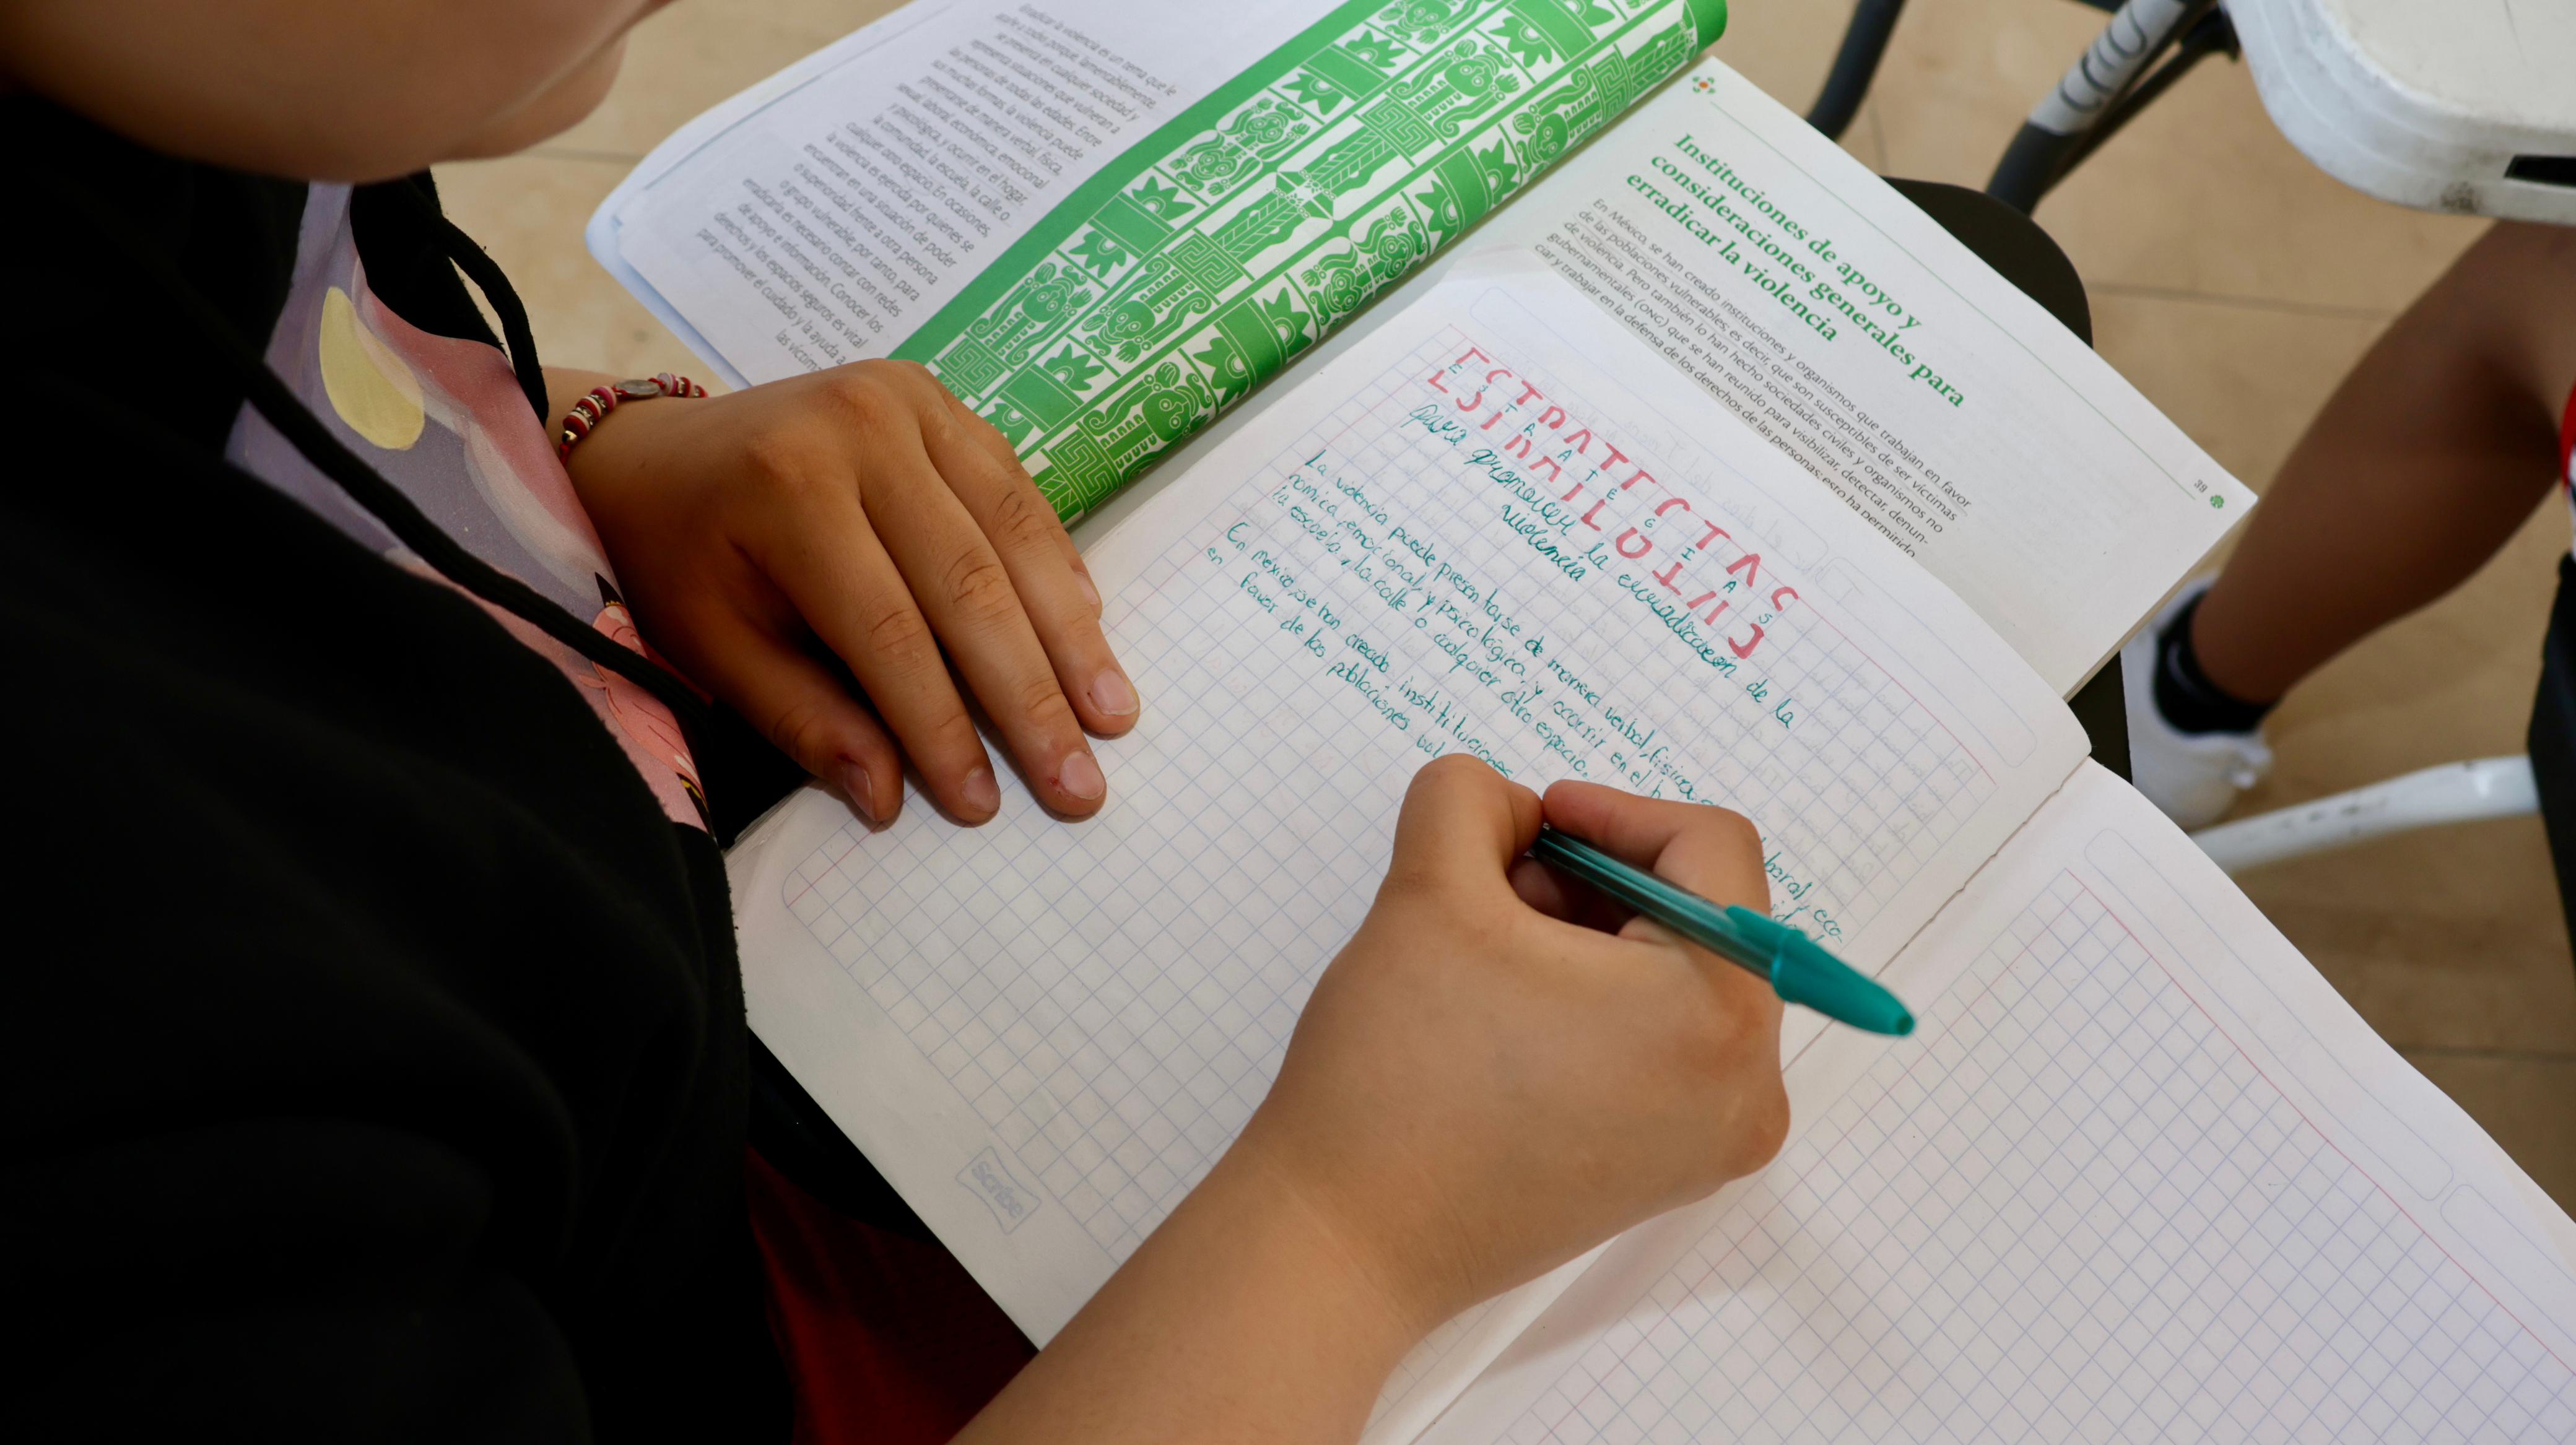 Erradicar la violencia es un tema que le
atañe a todos porque, lamentablemente,
se presenta en cualquier sociedad y
representa situaciones que vulneran a
las personas de todas las edades. Entre
sus muchas formas, la violencia puede
presentarse de manera verbal, física,
sexual, laboral, económica, emocional
y psicológica, y ocurrir en el hogar,
la comunidad, la escuela, la calle o
cualquier otro espacio. En ocasiones,
la violencia es ejercida por quienes se
encuentran en una situación de poder
o superioridad frente a otra persona
o grupo vulnerable, por tanto, para
erradicarla es necesario contar con redes
de apoyo e información. Conocer los
derechos y los espacios seguros es vital
para promover el cuidado y la ayuda a
las víctimas
Instituciones de apoyo y
consideraciones generales para
erradicar la violencia
En México, se han creado instituciones y organismos que trabajan en favor
de las poblaciones vulnerables, es decir, que son susceptibles de ser víctimas
de violencia. Pero también lo han hecho sociedades civiles y organismos no
gubernamentales (ONG) que se han reunido para visibilizar, detectar, denun-
ciar y trabajar en la defensa de los derechos de las personas; esto ha permitido
39
ESTRATEGIAS
para promover la erradicación de la
violencia
La violencia puede presentarse de manera verbal, física
boral, eco-
nómica, emocional, y psicológica, y ocurrir en el h
la escuela, la calle o cualquier otro espacio.
En mexico, se han creado instituciones
en favor de las poblaciones
Scribe